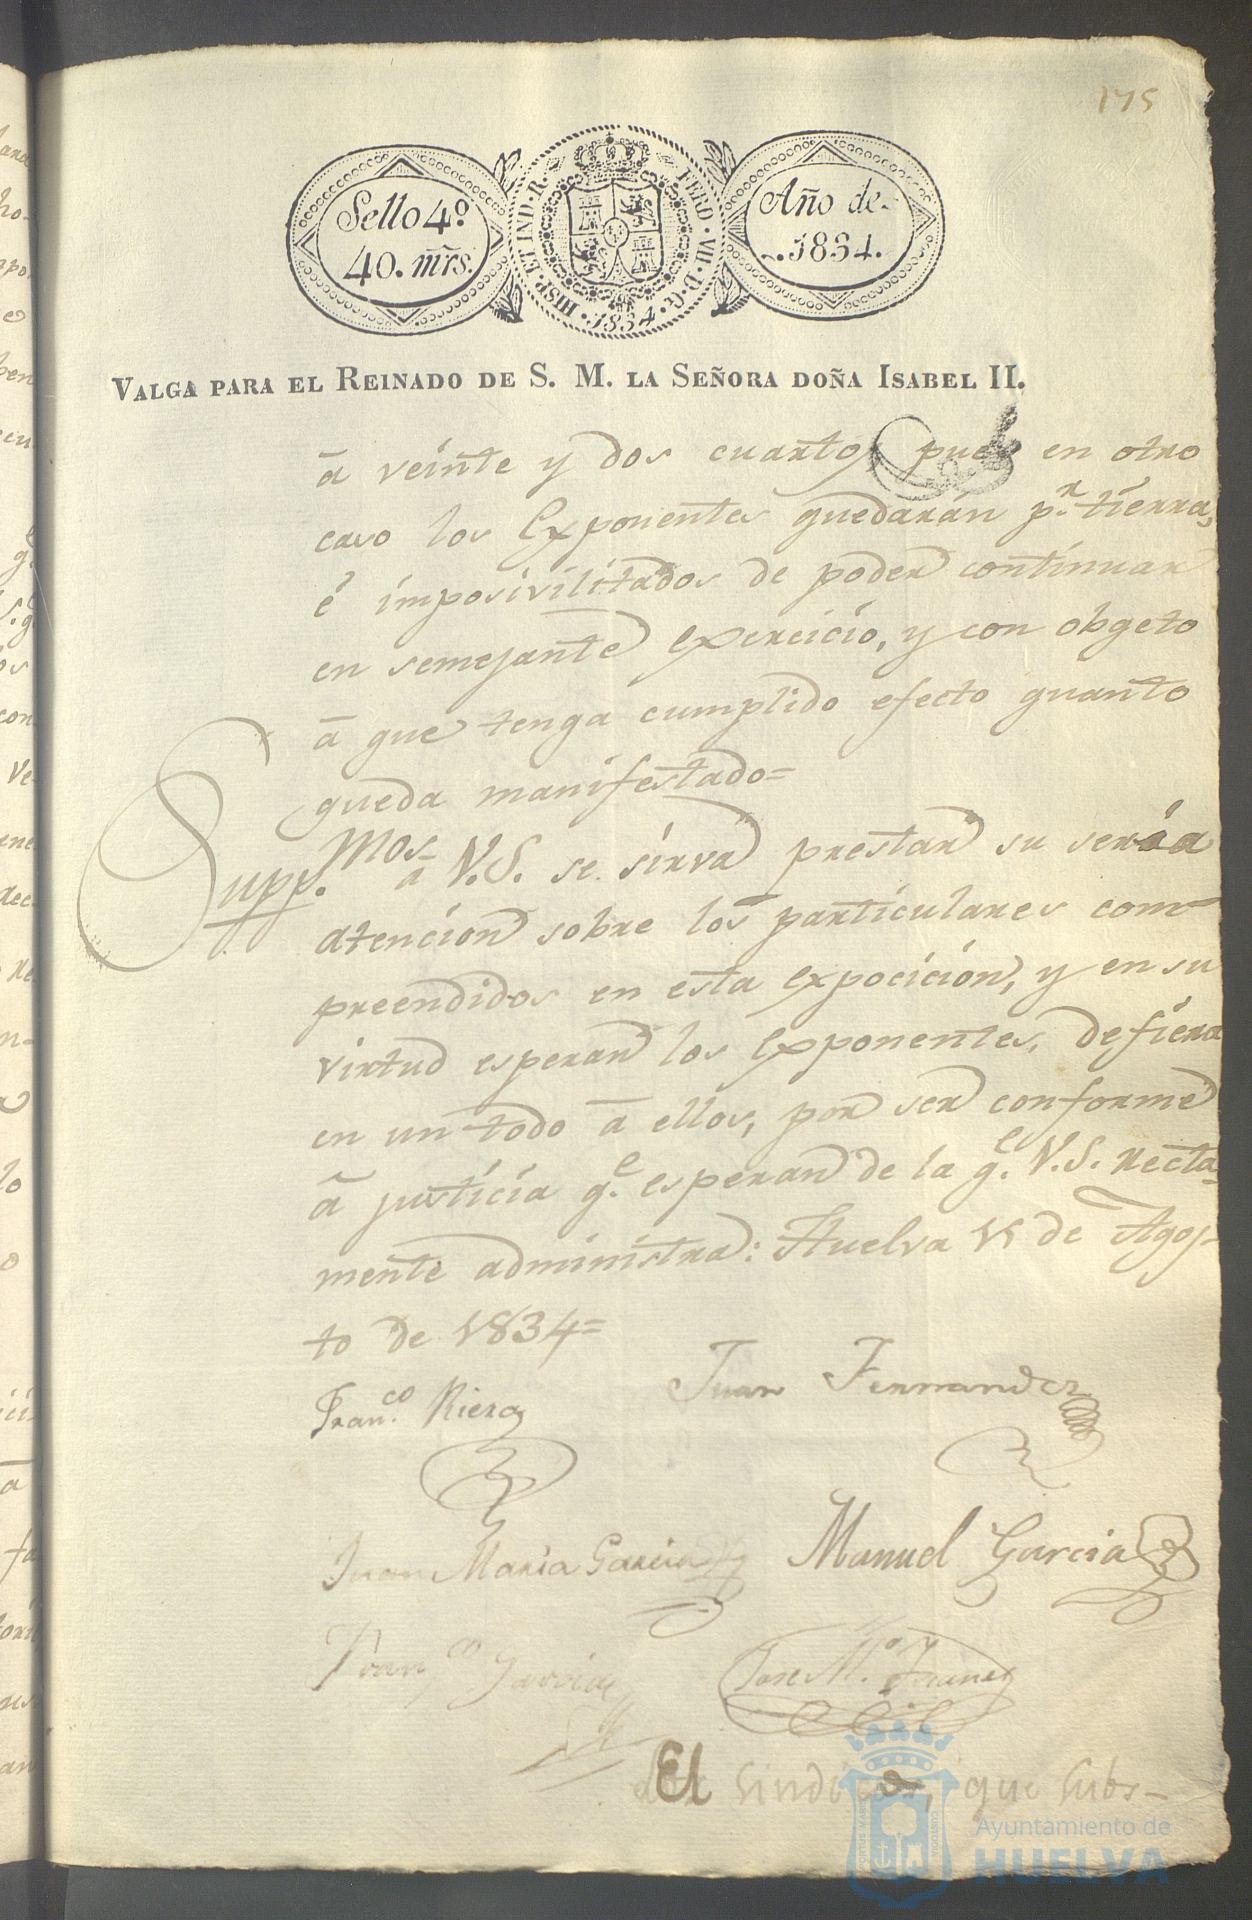 175
Sello 4º
40. mrs.
HISP. ET IND. R. FERD. VII. D. G. 1834
Año de
1834.
VALGA PARA EL REINADO DE S. M. LA SEÑORA DOÑA ISABEL II.
á veinte y dos cuartos pues en otro
caso los Exponentes quedarán p.r tierra,
é imposivilitados de poder continuar
en semejante exercicio, y con obgeto
á que tenga cumplido efecto quanto
queda manifestado=
Supp.mos a V.S. se sirva prestar su seria
atencion sobre los particulares com-
preendidos en esta expocición, y en su
virtud esperan los exponentes, defiera
en un todo á ellos, por ser conforme
á justicia q.e esperan de la q.e V.S. recta-
mente administra: Huelva 11 de Agos-
to de 1834=
Fran.co Riera
Juan Fernandez
Juan Maria Garcia
Manuel Garcia
Fran.co Garcia
Jose M.a Juanes
El Sindico, que subs-
Ayuntamiento de
HUELVA